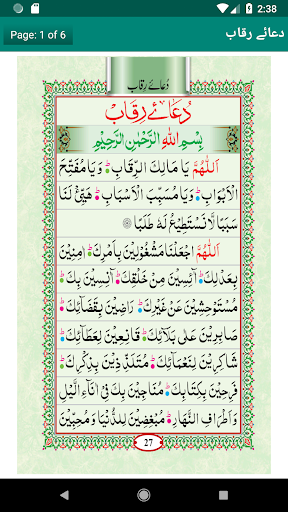 2:38
Page: 1 of 6
دعائے رقاب
دُعائے رقاب
دُعَائے رِقَاب
بِسْمِ اللهِ الرَّحْمٰنِ الرَّحِيْمِ
اَللّٰهُمَّ يَا مَالِكَ الرِّقَابِ ۞ وَيَا مُفَتِّحَ
الْاَبْوَابِ ۞ وَيَا مُسَبِّبَ الْاَسْبَابِ ۞ هَيِّئْ لَنَا
سَبَبًا لَّا نَسْتَطِيْعُ لَهٗ طَلَبًا ۞
اَللّٰهُمَّ اجْعَلْنَا مَشْغُوْلِيْنَ بِاَمْرِكَ ۞ اٰمِنِيْنَ
بِعَدْلِكَ ۞ آئِسِيْنَ مِنْ خَلْقِكَ ۞ آنِسِيْنَ بِكَ ۞
مُسْتَوْحِشِيْنَ عَنْ غَيْرِكَ ۞ رَاضِيْنَ بِقَضَائِكَ
صَابِرِيْنَ عَلٰى بَلَائِكَ ۞ قَانِعِيْنَ لِعَطَائِكَ
شَاكِرِيْنَ لِنَعْمَائِكَ ۞ مُتَلَذِّذِيْنَ بِذِكْرِكَ ۞
فَرِحِيْنَ بِكِتَابِكَ ۞ مُنَاجِيْنَ بِكَ فِيْ اٰنَاءِ الَّيْلِ
وَاَطْرَافِ النَّهَارِ ۞ مُبْغِضِيْنَ لِلدُّنْيَا وَمُحِبِّيْنَ
27